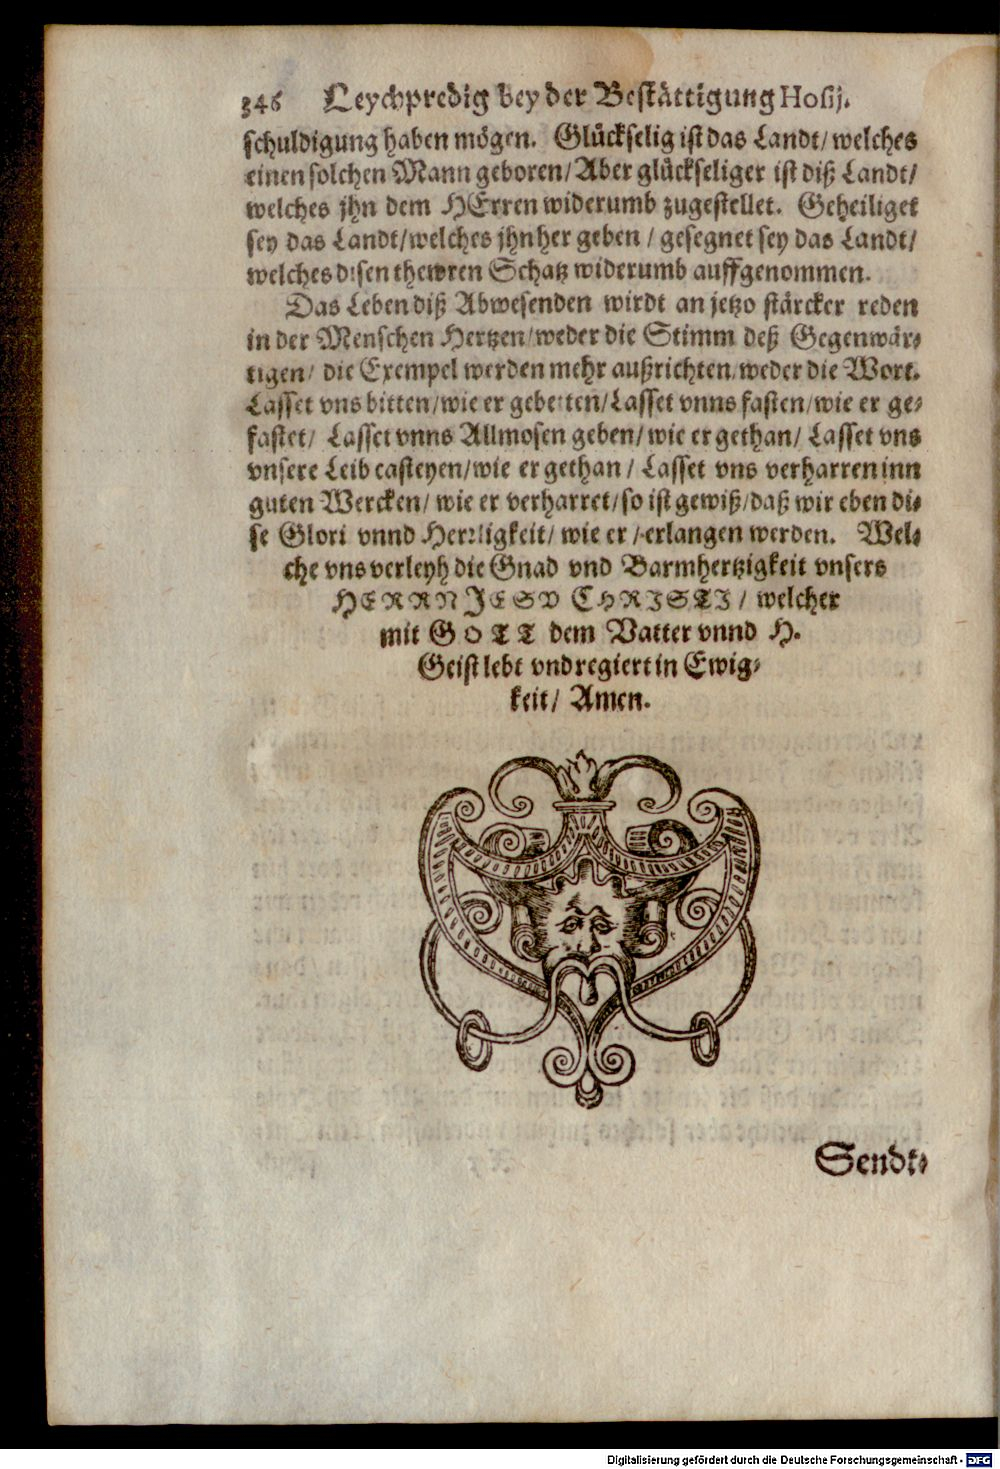 346 Leychpredig bey der Bestättigung Hosij.
schuldigung haben mögen. Glückselig ist das Landt/ welches
einen solchen Mann geboren/ Aber glückseliger ist diß Landt/
welches jhn dem HErren widerumb zugestellet. Geheiliget
sey das Landt/ welches jhn her geben / gesegnet sey das Landt/
welches disen thewren Schatz widerumb auffgenommen.
Das Leben diß Abwesenden wirdt an jetzo stärcker reden
in der Menschen Hertzen/ weder die Stimm deß Gegenwär-
tigen/ die Exempel werden mehr außrichten/ weder die Wort.
Lasset vns bitten/ wie er gebetten/ Lasset vnns fasten/ wie er ge-
fastet/ Lasset vnns Allmosen geben/ wie er gethan/ Lasset vns
vnsere Leib casteyen/ wie er gethan / Lasset vns verharren inn
guten Wercken/ wie er verharret/ so ist gewiß/ daß wir eben di-
se Glori vnnd Herrligkeit/ wie er / erlangen werden. Wel-
che vns verleyh die Gnad vnd Barmhertzigkeit vnsers
HERRN JESV CHRISTI/ welcher
mit GOTT dem Vatter vnnd H.
Geist lebt vnd regiert in Ewig-
keit/ Amen.
Sendt-
Digitalisierung gefördert durch die Deutsche Forschungsgemeinschaft - DFG